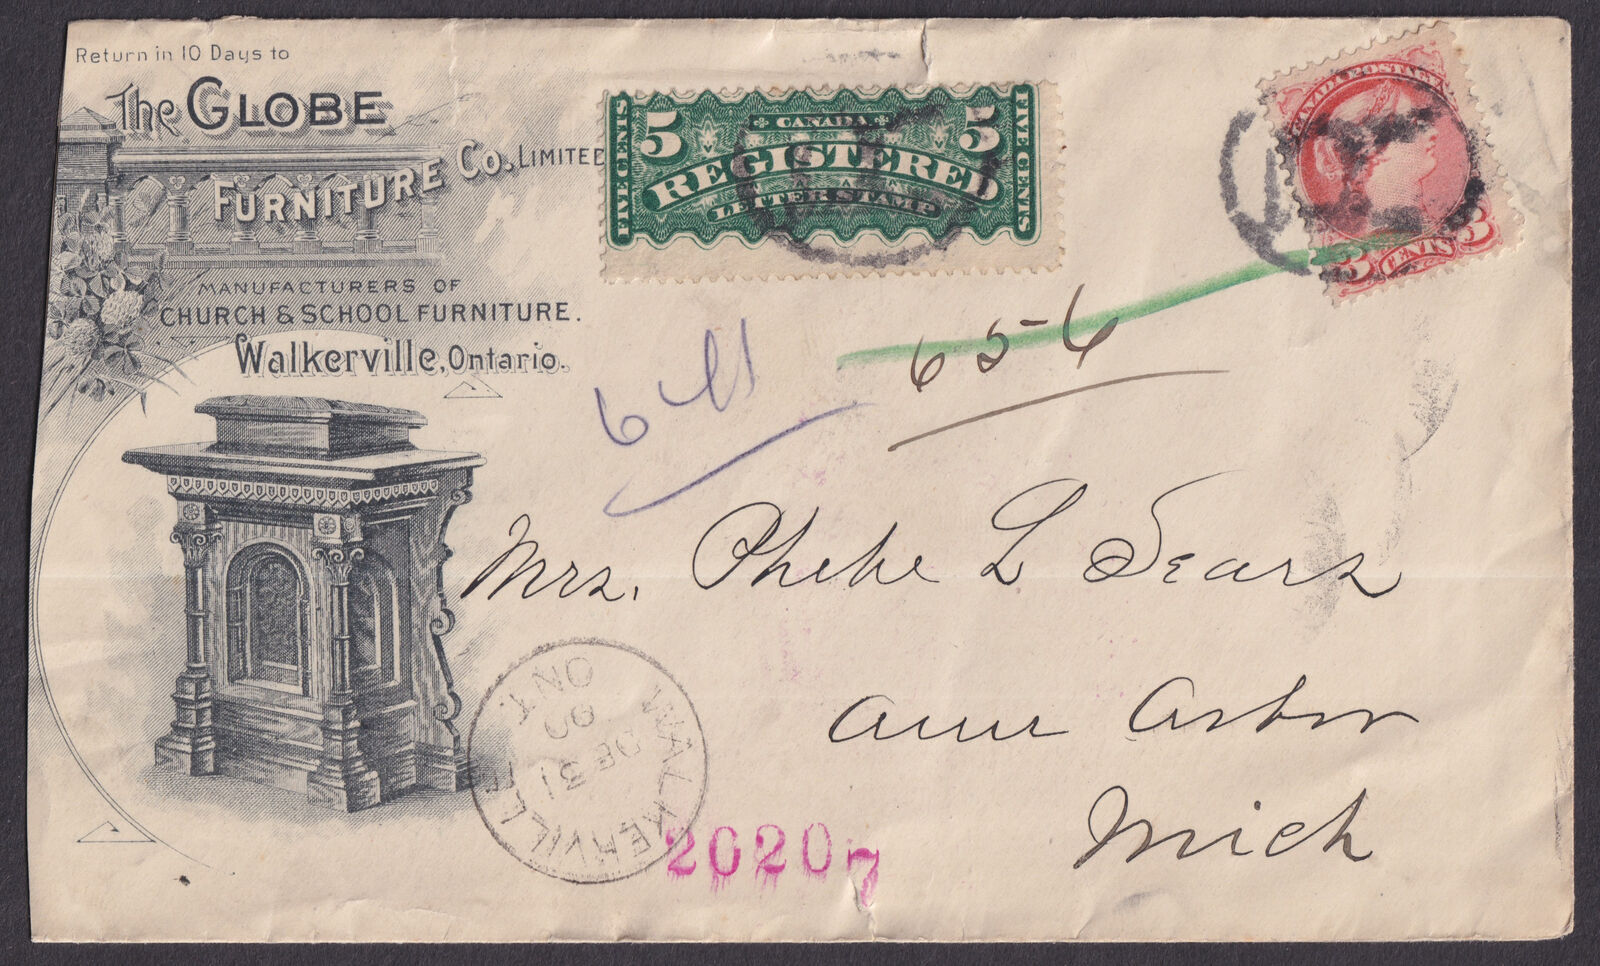 Return in 10 Days to
The GLOBE
FURNITURE Co. LIMITED
MANUFACTURERS OF
CHURCH & SCHOOL FURNITURE.
Walkerville, Ontario.
FIVE CENTS
5 CANADA 5
REGISTERED
LETTER STAMP
FIVE CENTS
CANADA POSTAGE
3 CENTS 3
656
Mrs. Phebe L Sears
Ann Arbor
Mich
WALKERVILLE
DE 31
90
ONT
20207